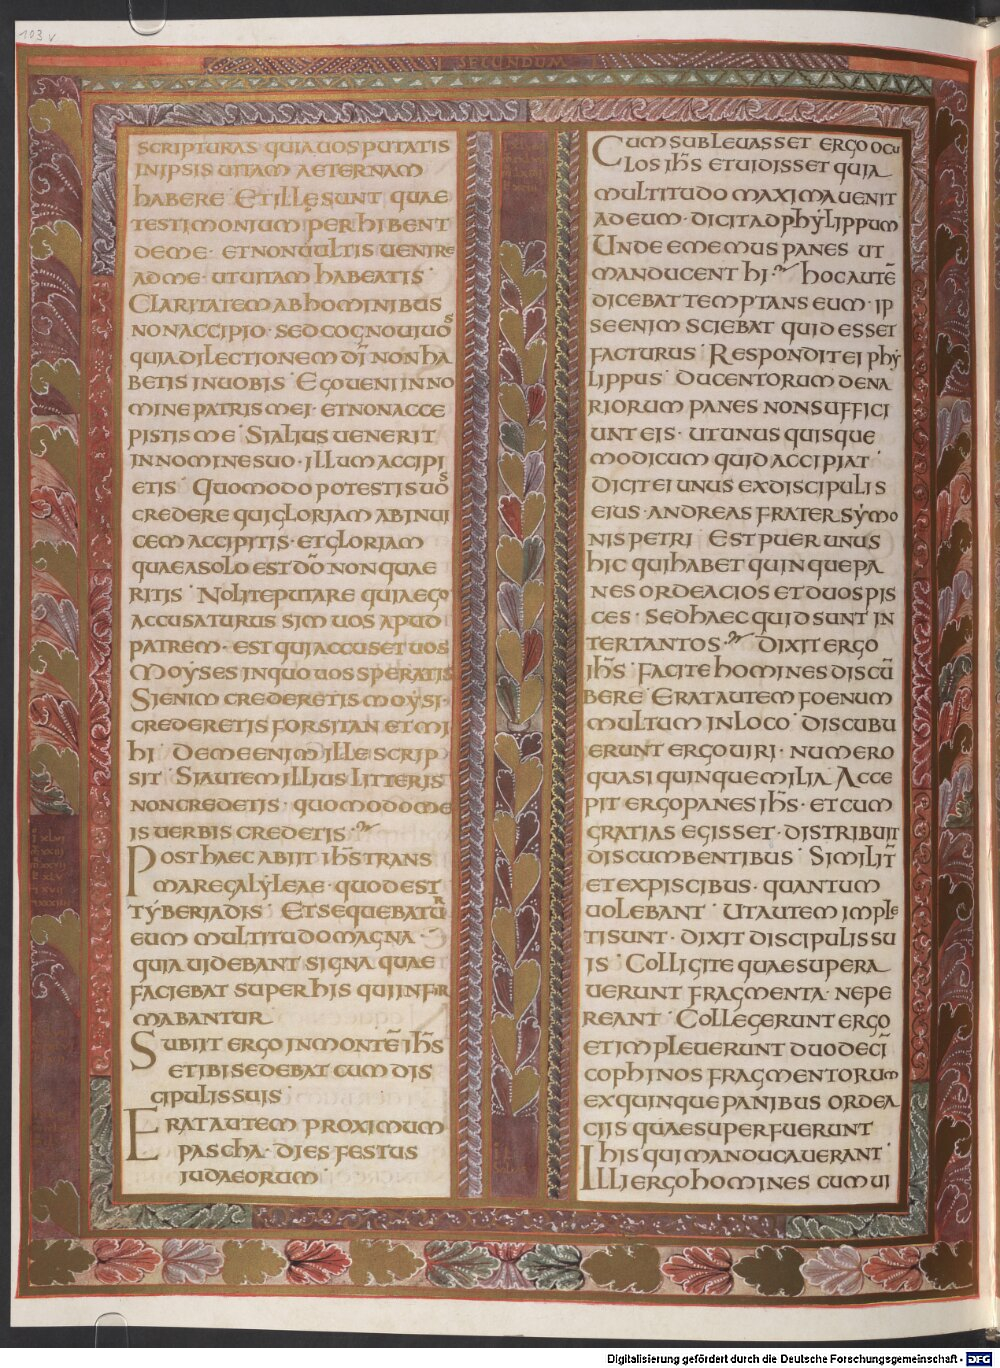 103 v
SECUNDUM
SCRIPTURAS QUIA UOS PUTATIS
IN IPSIS UITAM AETERNAM
HABERE· ET ILLE SUNT QUAE
TESTIMONIUM PERHIBENT
DE ME· ET NON UULTIS UENIRE
AD ME· UT UITAM HABEATIS·
CLARITATEM AB HOMINIBUS
NON ACCIPIO· SED COGNOUI UOS
QUIA DILECTIONEM DĪ NON HA
BETIS IN UOBIS· EGO UENI IN NO
MINE PATRIS MEI· ET NON ACCE
PISTIS ME· SI ALIUS UENERIT
IN NOMINE SUO· ILLUM ACCIPI
ETIS· QUOMODO POTESTIS UOS
CREDERE QUI GLORIAM AB INUI
CEM ACCIPITIS· ET GLORIAM
QUAE A SOLO EST DŌ NON QUAE
RITIS· NOLITE PUTARE QUIA EGO
ACCUSATURUS SIM UOS APUD
PATREM· EST QUI ACCUSET UOS
MOYSES IN QUO UOS SPERATIS
SI ENIM CREDERETIS MOYSI·
CREDERETIS FORSITAN ET MI
HI· DE ME ENIM ILLE SCRIP
SIT· SI AUTEM ILLIUS LITTERIS
NON CREDETIS· QUOMODO ME
IS UERBIS CREDETIS·
POST HAEC ABIIT IHS̄ TRANS
MARE GALYLEAE· QUOD EST
TYBERIADIS· ET SEQUEBATUR
EUM MULTITUDO MAGNA·
QUIA UIDEBANT SIGNA QUAE
FACIEBAT SUPER HIS QUI INFIR
MABANTUR
SUBIIT ERGO IN MONTĒ IHS̄
ET IBI SEDEBAT CUM DIS
CIPULIS SUIS·
ERAT AUTEM PROXIMUM
PASCHA· DIES FESTUS
IUDAEORUM·
CUM SUBLEUASSET ERGO OCU
LOS IHS̄ ET UIDISSET QUIA
MULTITUDO MAXIMA UENIT
AD EUM· DICIT AD PHYLIPPUM
UNDE EMEMUS PANES UT
MANDUCENT HI· HOC AUTĒ
DICEBAT TEMPTANS EUM· IP
SE ENIM SCIEBAT QUID ESSET
FACTURUS· RESPONDIT EI PHY
LIPPUS· DUCENTORUM DENA
RIORUM PANES NON SUFFICI
UNT EIS· UT UNUSQUISQUE
MODICUM QUID ACCIPIAT·
DICIT EI UNUS EX DISCIPULIS
EIUS· ANDREAS FRATER SYMO
NIS PETRI· EST PUER UNUS
HIC QUI HABET QUINQUE PA
NES ORDEACIOS ET DUOS PIS
CES· SED HAEC QUID SUNT IN
TER TANTOS· DIXIT ERGO
IHS̄· FACITE HOMINES DISCŪ
BERE· ERAT AUTEM FOENUM
MULTUM IN LOCO· DISCUBU
ERUNT ERGO UIRI· NUMERO
QUASI QUINQUE MILIA· ACCE
PIT ERGO PANES IHS̄· ET CUM
GRATIAS EGISSET· DISTRIBUIT
DISCUMBENTIBUS· SIMILIT̄
ET EX PISCIBUS· QUANTUM
UOLEBANT· UT AUTEM IMPLE
TI SUNT· DIXIT DISCIPULIS SU
IS· COLLIGITE QUAE SUPERA
UERUNT FRAGMENTA· NE PE
REANT· COLLEGERUNT ERGO
ET IMPLEUERUNT DUODECĪ
COPHINOS FRAGMENTORUM
EX QUINQUE PANIBUS ORDEA
CIIS QUAE SUPERFUERUNT·
HIS QUI MANDUCAUERANT·
ILLI ERGO HOMINES CUM UI
Digitalisierung gefördert durch die Deutsche Forschungsgemeinschaft - DFG